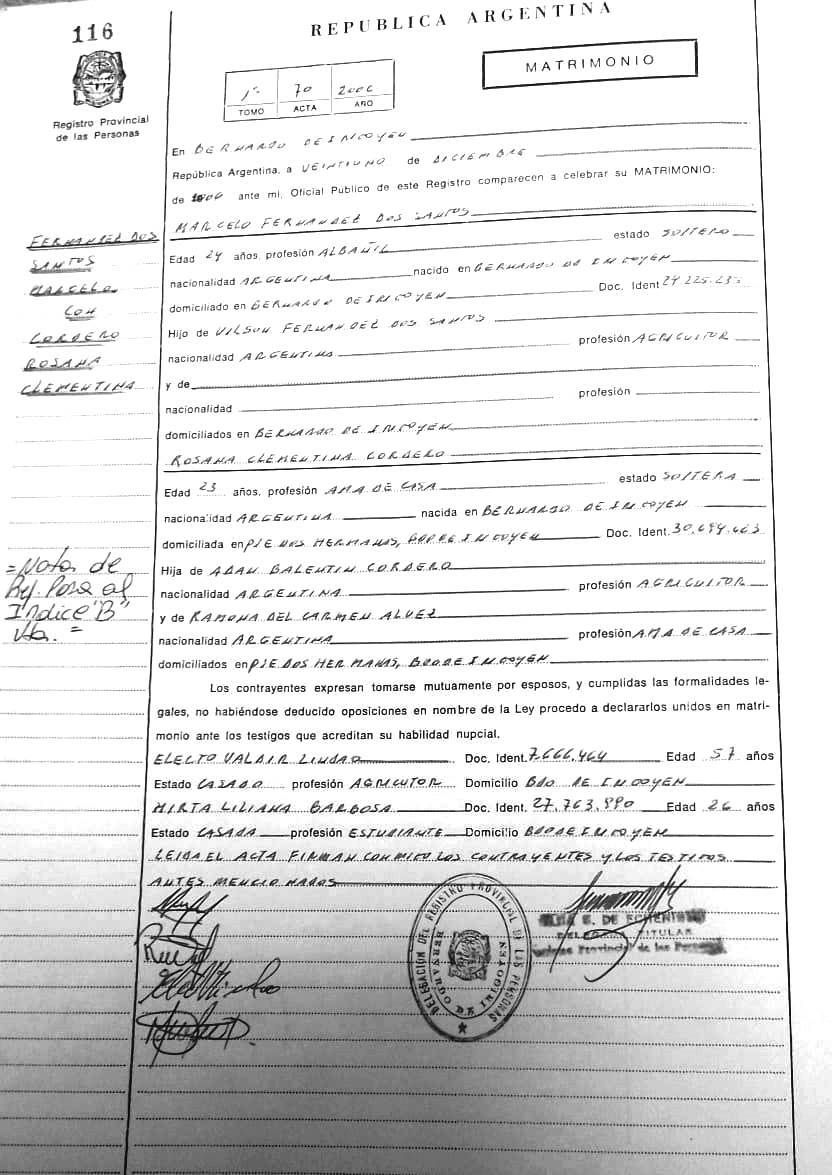 116
REPUBLICA ARGENTINA
MATRIMONIO
Registro Provincial
de las Personas
1º 70 2006
TOMO ACTA AÑO
En BERNARDO DE IRIGOYEN
República Argentina, a VEINTIUNO de DICIEMBRE
de 2006 ante mi, Oficial Público de este Registro comparecen a celebrar su MATRIMONIO:
MARCELO FERNANDEZ DOS SANTOS
FERNANDEZ DOS
SANTOS
MARCELO
CON
CORDERO
ROSANA
CLEMENTINA
Edad 24 años, profesión ALBAÑIL estado SOLTERO
nacionalidad ARGENTINA nacido en BERNARDO DE IRIGOYEN
domiciliado en BERNARDO DE IRIGOYEN Doc. Ident.
Hijo de VILSON FERNANDEZ DOS SANTOS
nacionalidad ARGENTINA profesión AGRICULTOR
y de
nacionalidad profesión
domiciliados en BERNARDO DE IRIGOYEN
ROSANA CLEMENTINA CORDERO
Edad 23 años, profesión AMA DE CASA estado SOLTERA
nacionalidad ARGENTINA nacida en BERNARDO DE IRIGOYEN
domiciliada en PJE DOS HERMANAS, BDO DE IRIGOYEN Doc. Ident.
Hija de ADAN BALENTIN CORDERO
nacionalidad ARGENTINA profesión AGRICULTOR
y de RAMONA DEL CARMEN ALVEZ
nacionalidad ARGENTINA profesión AMA DE CASA
domiciliados en PJE DOS HERMANAS, BDO DE IRIGOYEN
=Nota de
Ref. Pasa al
Indice "B"
Vta. =
Los contrayentes expresan tomarse mutuamente por esposos, y cumplidas las formalidades le-
gales, no habiéndose deducido oposiciones en nombre de la Ley procedo a declararlos unidos en matri-
monio ante los testigos que acreditan su habilidad nupcial.
ELECTO VALDIR Doc. Ident. 7.666.464 Edad 57 años
Estado CASADO profesión AGRICUTOR Domicilio BDO DE IRIGOYEN
MIRTA LILIANA BARBOSA Doc. Ident. 27.763.890 Edad 26 años
Estado CASADA profesión ESTUDIANTE Domicilio BDO DE IRIGOYEN
LEIDA EL ACTA FIRMAN CONMIGO LOS CONTRAYENTES Y LOS TESTIGOS
ANTES MENCIONADOS
DELEGACION DEL REGISTRO PROVINCIAL DE LAS PERSONAS
BERNARDO DE IRIGOYEN
E. DE
TITULAR
Provincial de las